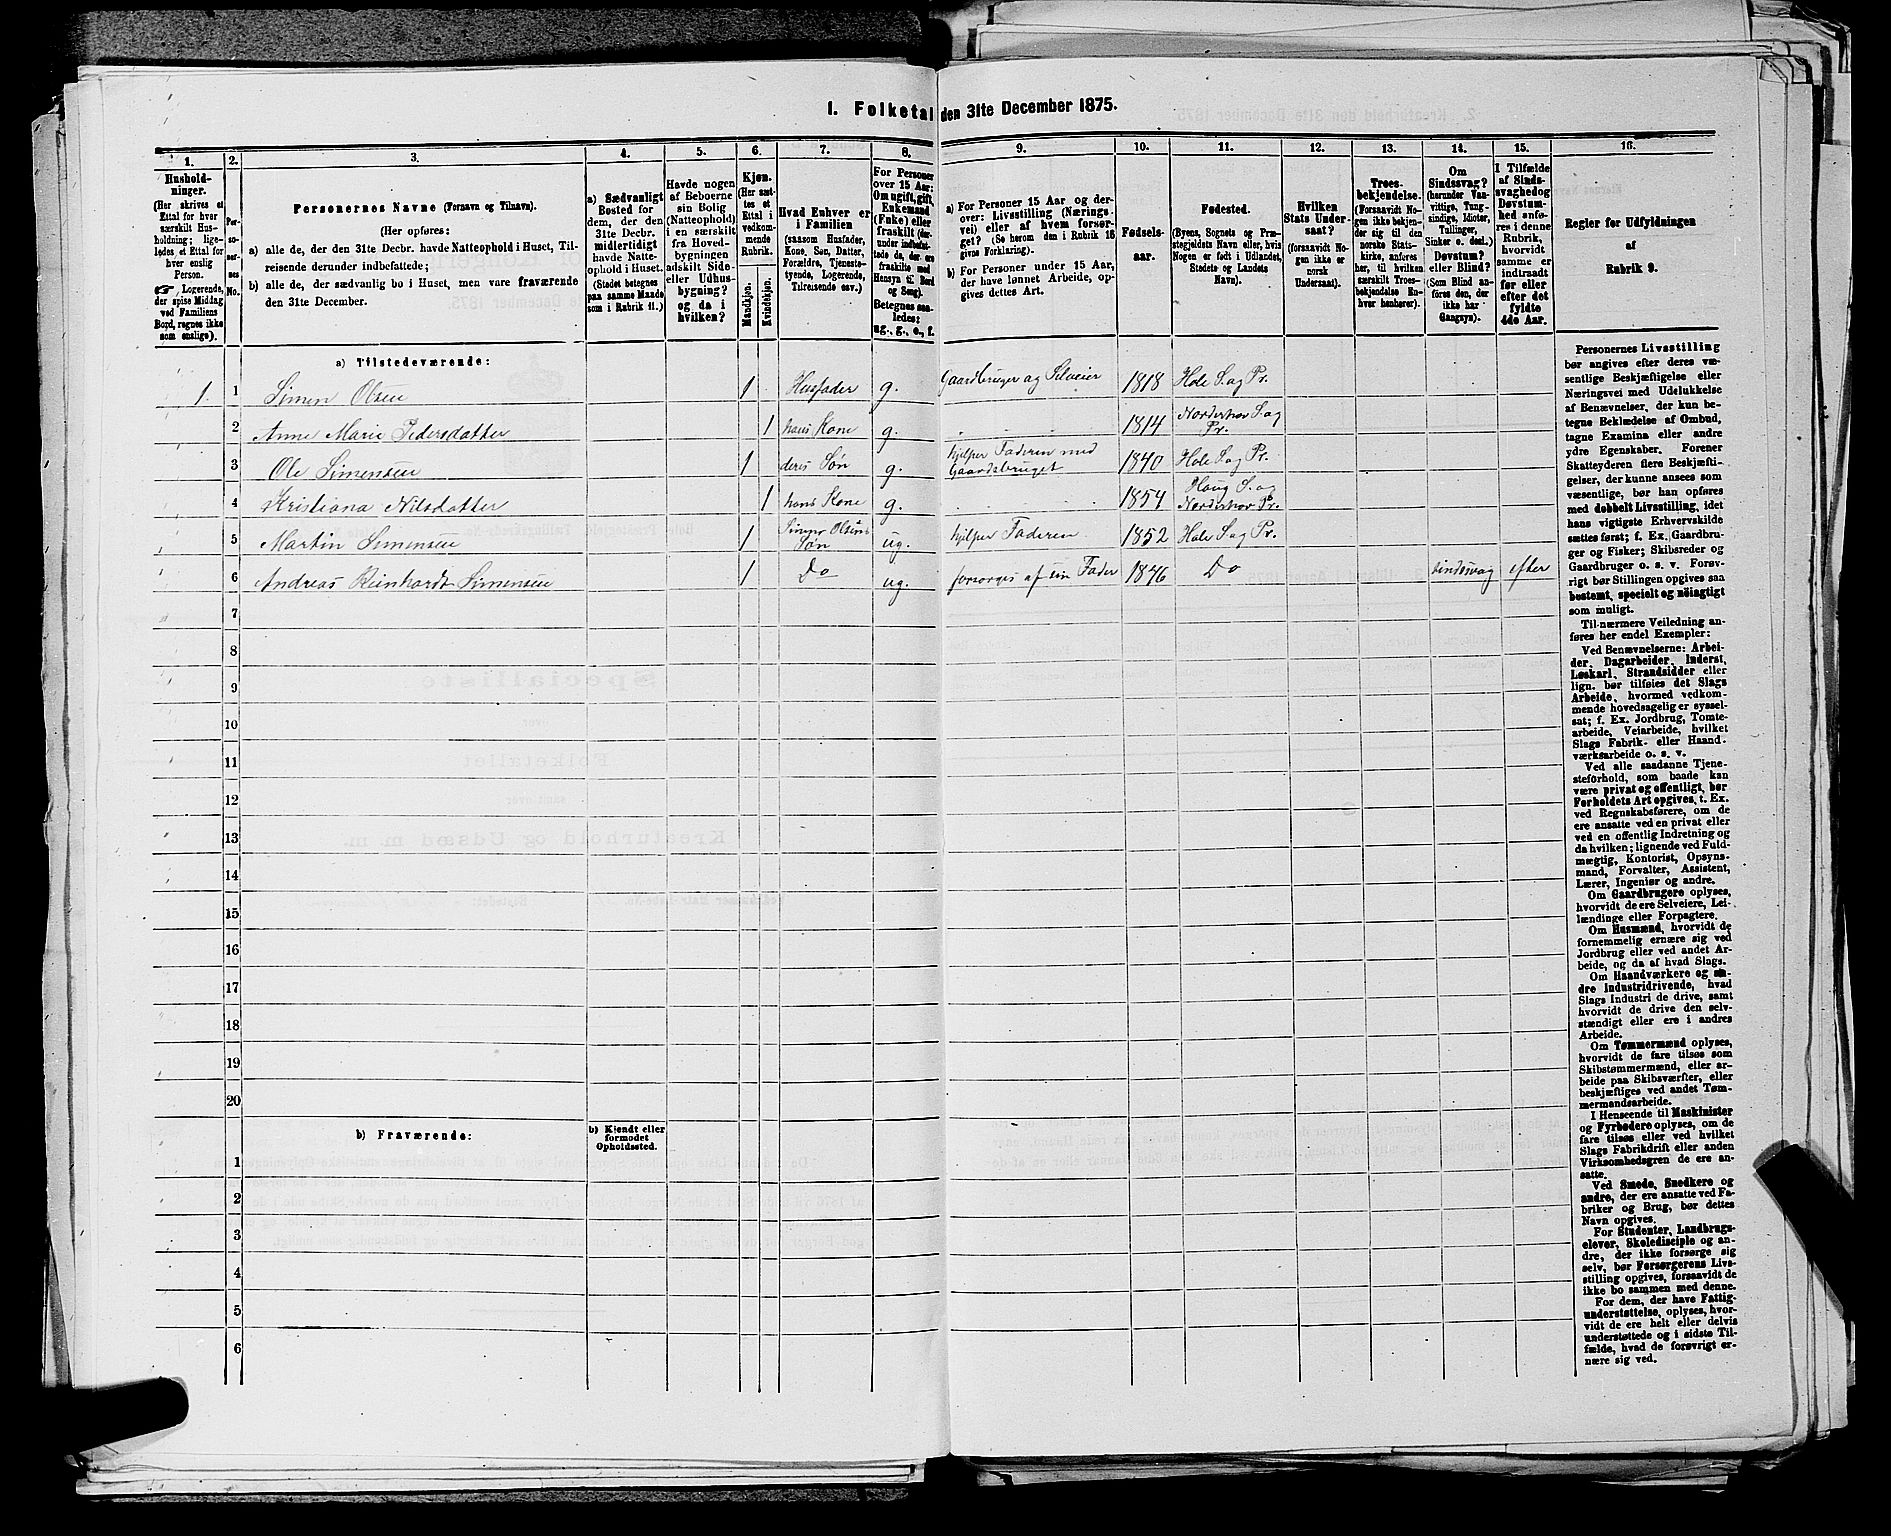 1. Folketal den 31te December 1875.
1. 2. 3. 4. 5. 6. 7. 8. 9. 10. 11. 12. 13. 14. 15. 16.
Hushold-
ninger.
(Her skrives et
Ettal for hver
særskilt Hus-
holdning; lige-
ledes et Ettal for
hver enslig
Person.
☞ Logerende,
der spise Middag
ved Familiens
Bord, regnes ikke
som enslige).
Per-
so-
ner-
nes
No.
Personernes Navne (Fornavn og Tilnavn).
(Her opføres:
a) alle de, der den 31te Decbr. havde Natteophold i Huset, Til-
reisende derunder indbefattede;
b) alle de, der sædvanlig bo i Huset, men vare fraværende
den 31te December.
a) Sædvanligt
Bosted for
dem, der den
31te Decbr.
midlertidigt
havde Natte-
ophold i Huset.
(Stedet betegnes
paa samme Maade
som i Rubrik 11.)
Havde nogen
af Beboerne
sin Bolig
(Natteophold)
i en særskilt
fra Hoved-
bygningen
adskilt Side-
eller Udhus-
bygning?
og da i
hvilken?
Kjøn.
(Her sæt-
tes et
Ettal i
vedkom-
mende
Rubrik.
Mandkjøn.
Kvindekjøn.
Hvad Enhver er
i Familien
(saasom Husfader,
Kone, Søn, Datter,
Forældre, Tjeneste-
tyende, Logerende,
Tilreisende osv.)
For Personer
over 15 Aar:
Om ugift, gift,
Enkemand
(Enke) eller
fraskilt (der-
under indbefat-
tede de, der ere
fraskilte med
Hensyn til Bord
og Seng).
Betegnes saa-
ledes:
ug., g., e., f.
a) For Personer 15 Aar og der-
over: Livsstilling (Nærings-
vei) eller af hvem forsør-
get? (Se herom den i Rubrik 16
givne Forklaring).
b) For Personer under 15 Aar,
der have lønnet Arbeide, op-
gives dettes Art.
Fødsels-
aar.
Fødested.
(Byens, Sognets og Præ-
stegjeldets Navn eller, hvis
Nogen er født i Udlandet,
Stedets og Landets
Navn).
Hvilken
Stats Under-
saat?
(forsaavidt No-
gen ikke er
norsk
Undersaat).
Troes-
bekjendelse.
(Forsaavidt No-
gen ikke bekjen-
der sig til den
norske Stats-
kirke, anføres
her, til hvilken
særskilt Troes-
bekjendelse En-
hver henhører).
Om
Sindssvag?
(herunder Van-
vittige, Tung-
sindige, Idioter,
Tullinger,
Sinker o. desl.)
Døvstum?
eller Blind?
(Som Blind an-
føres den, der
ikke har
Gangsyn).
I Tilfælde
af Sinds-
svaghed og
Døvstum-
hed anfø-
res i denne
Rubrik,
hvorvidt
samme er
indtraadt
før eller
efter det
fyldte
4de Aar.
Regler for Udfyldningen
af
Rubrik 9.
a) Tilstedeværende:
1. 1 Simen Olsen 1 Husfader g. Gaardbruger og Selveier 1818 Hole S. og Pr.
2 Anne Marie Pedersdatter 1 hans Kone g. 1814 Norderhov S. og
Pr.
3 Ole Simensen 1 deres Søn g. hjelper Faderen med
Gaardsbruget 1840 Hole S. og Pr.
4 Kristiana Nilsdatter 1 hans Kone g. 1854 Haug S. og
Norderhov Pr.
5 Martin Simensen 1 Simen Olsens
Søn ug. hjelper Faderen 1852 Hole S. og Pr.
6 Andreas Reinhardt Simensen 1 Do ug. forsørges af sin Fader 1846 Do sindssvag efter
7
8
9
10
11
12
13
14
15
16
17
18
19
20
b) Fraværende:
b) Kjendt eller
formodet
Opholdssted.
1
2
3
4
5
6
Personernes Livsstilling
bør angives efter deres væ-
sentlige Beskjæftigelse eller
Næringsvei med Udelukkelse
af Benævnelser, der kun be-
tegne Beklædelse af Ombud,
tagne Examina eller andre
ydre Egenskaber. Forener
Skatteyderen flere Beskjæfti-
gelser, der kunne ansees som
væsentlige, bør han opføres
med dobbelt Livsstilling, idet
hans vigtigste Erhvervskilde
sættes først; f. Ex. Gaardbru-
ger og Fisker; Skibsreder og
Gaardbruger o. s. v. Forøv-
rigt bør Stillingen opgives saa
bestemt, specielt og nøiagtigt
som muligt.
Til nærmere Veiledning an-
føres her endel Exempler:
Ved Benævnelserne: Arbei-
der, Dagarbeider, Inderst,
Løskarl, Strandsidder eller
lign. bør tilføies det Slags
Arbeide, hvormed vedkom-
mende hovedsagelig er syssel-
sat; f. Ex. Jordbrug, Tomte-
arbeide, Veiarbeide, hvilket
Slags Fabrik- eller Haand-
værksarbeide o. s. v.
Ved alle saadanne Tjene-
steforhold, som baade kan
være privat og offentligt, bør
Forholdets Art opgives, t. Ex.
ved Regnskabsførere, om de
ere ansatte ved en privat eller
ved en offentlig Indretning og
da hvilken; lignende ved Fuld-
mægtig, Kontorist, Opsyns-
mand, Forvalter, Assistent,
Lærer, Ingeniør og andre.
Om Gaardbrugere oplyses,
hvorvidt de ere Selveiere, Lei-
lændinge eller Forpagtere.
Om Husmænd, hvorvidt de
fornemmelig ernære sig ved
Jordbrug eller ved andet Ar-
beide, og da af hvad Slags.
Om Haandværkere og an-
dre Industridrivende, hvad
Slags Industri de drive, samt
hvorvidt de drive den selv-
stændigt eller ere i andres
Arbeide.
Om Tømmermænd oplyses,
hvorvidt de fare tilsøs som
Skibstømmermænd, eller ar-
beide paa Skibsværfter, eller
beskjæftiges ved andet Tøm-
mermandsarbeide.
I Henseende til Maskinister
og Fyrbødere oplyses, om de
fare tilsøs eller ved hvilket
Slags Fabrikdrift eller anden
Virksomhedsgren de ere an-
satte.
Ved Smede, Snedkere og
andre, der ere ansatte ved Fa-
briker og Brug, bør dettes
Navn opgives.
For Studenter, Landbrugs-
elever, Skoledisciple og an-
dre, der ikke forsørge sig
selv, bør Forsørgerens Livs-
stilling opgives, forsaavidt de
ikke bo sammen med denne.
For dem, der have Fattig-
understøttelse, oplyses, hvor-
vidt de ere helt eller delvis
understøttede og i sidste Til-
fælde, hvad de forøvrigt er-
nære sig ved.